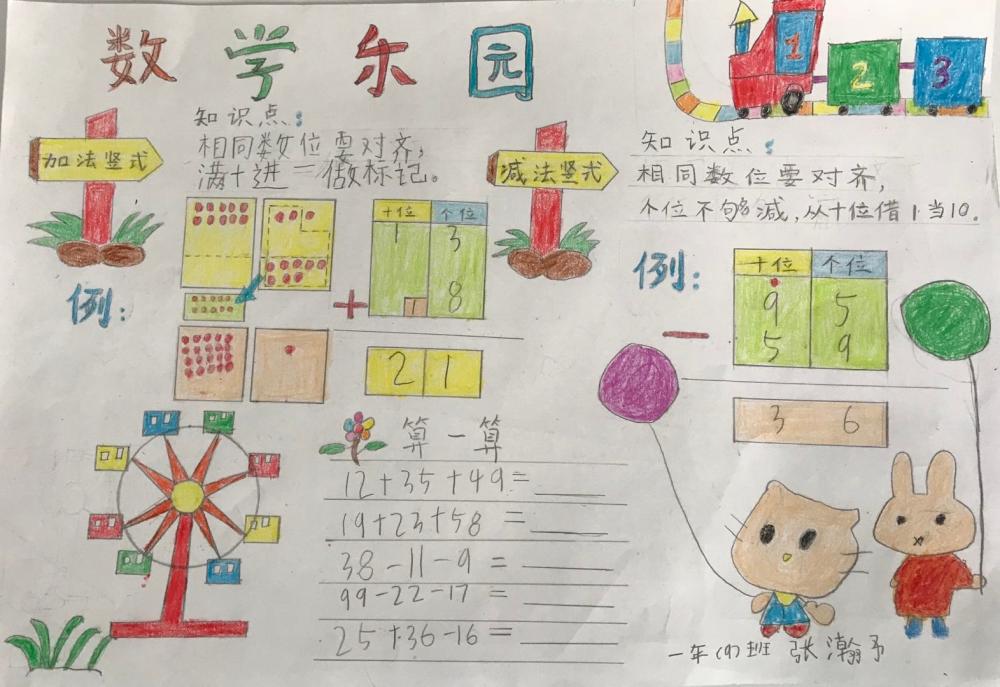 数学乐园
1 2 3
加法竖式
知识点：
相同数位要对齐，
满十进一做标记。
例：
十位 个位
1 3
+ 8
1
2 1
减法竖式
知识点：
相同数位要对齐，
个位不够减，从十位借1当10。
例：
十位 个位
9 5
- 5 9
3 6
算一算
12+35+49=
19+23+58=
38-11-9=
99-22-17=
25+36-16=
一年(9)班 张瀚予